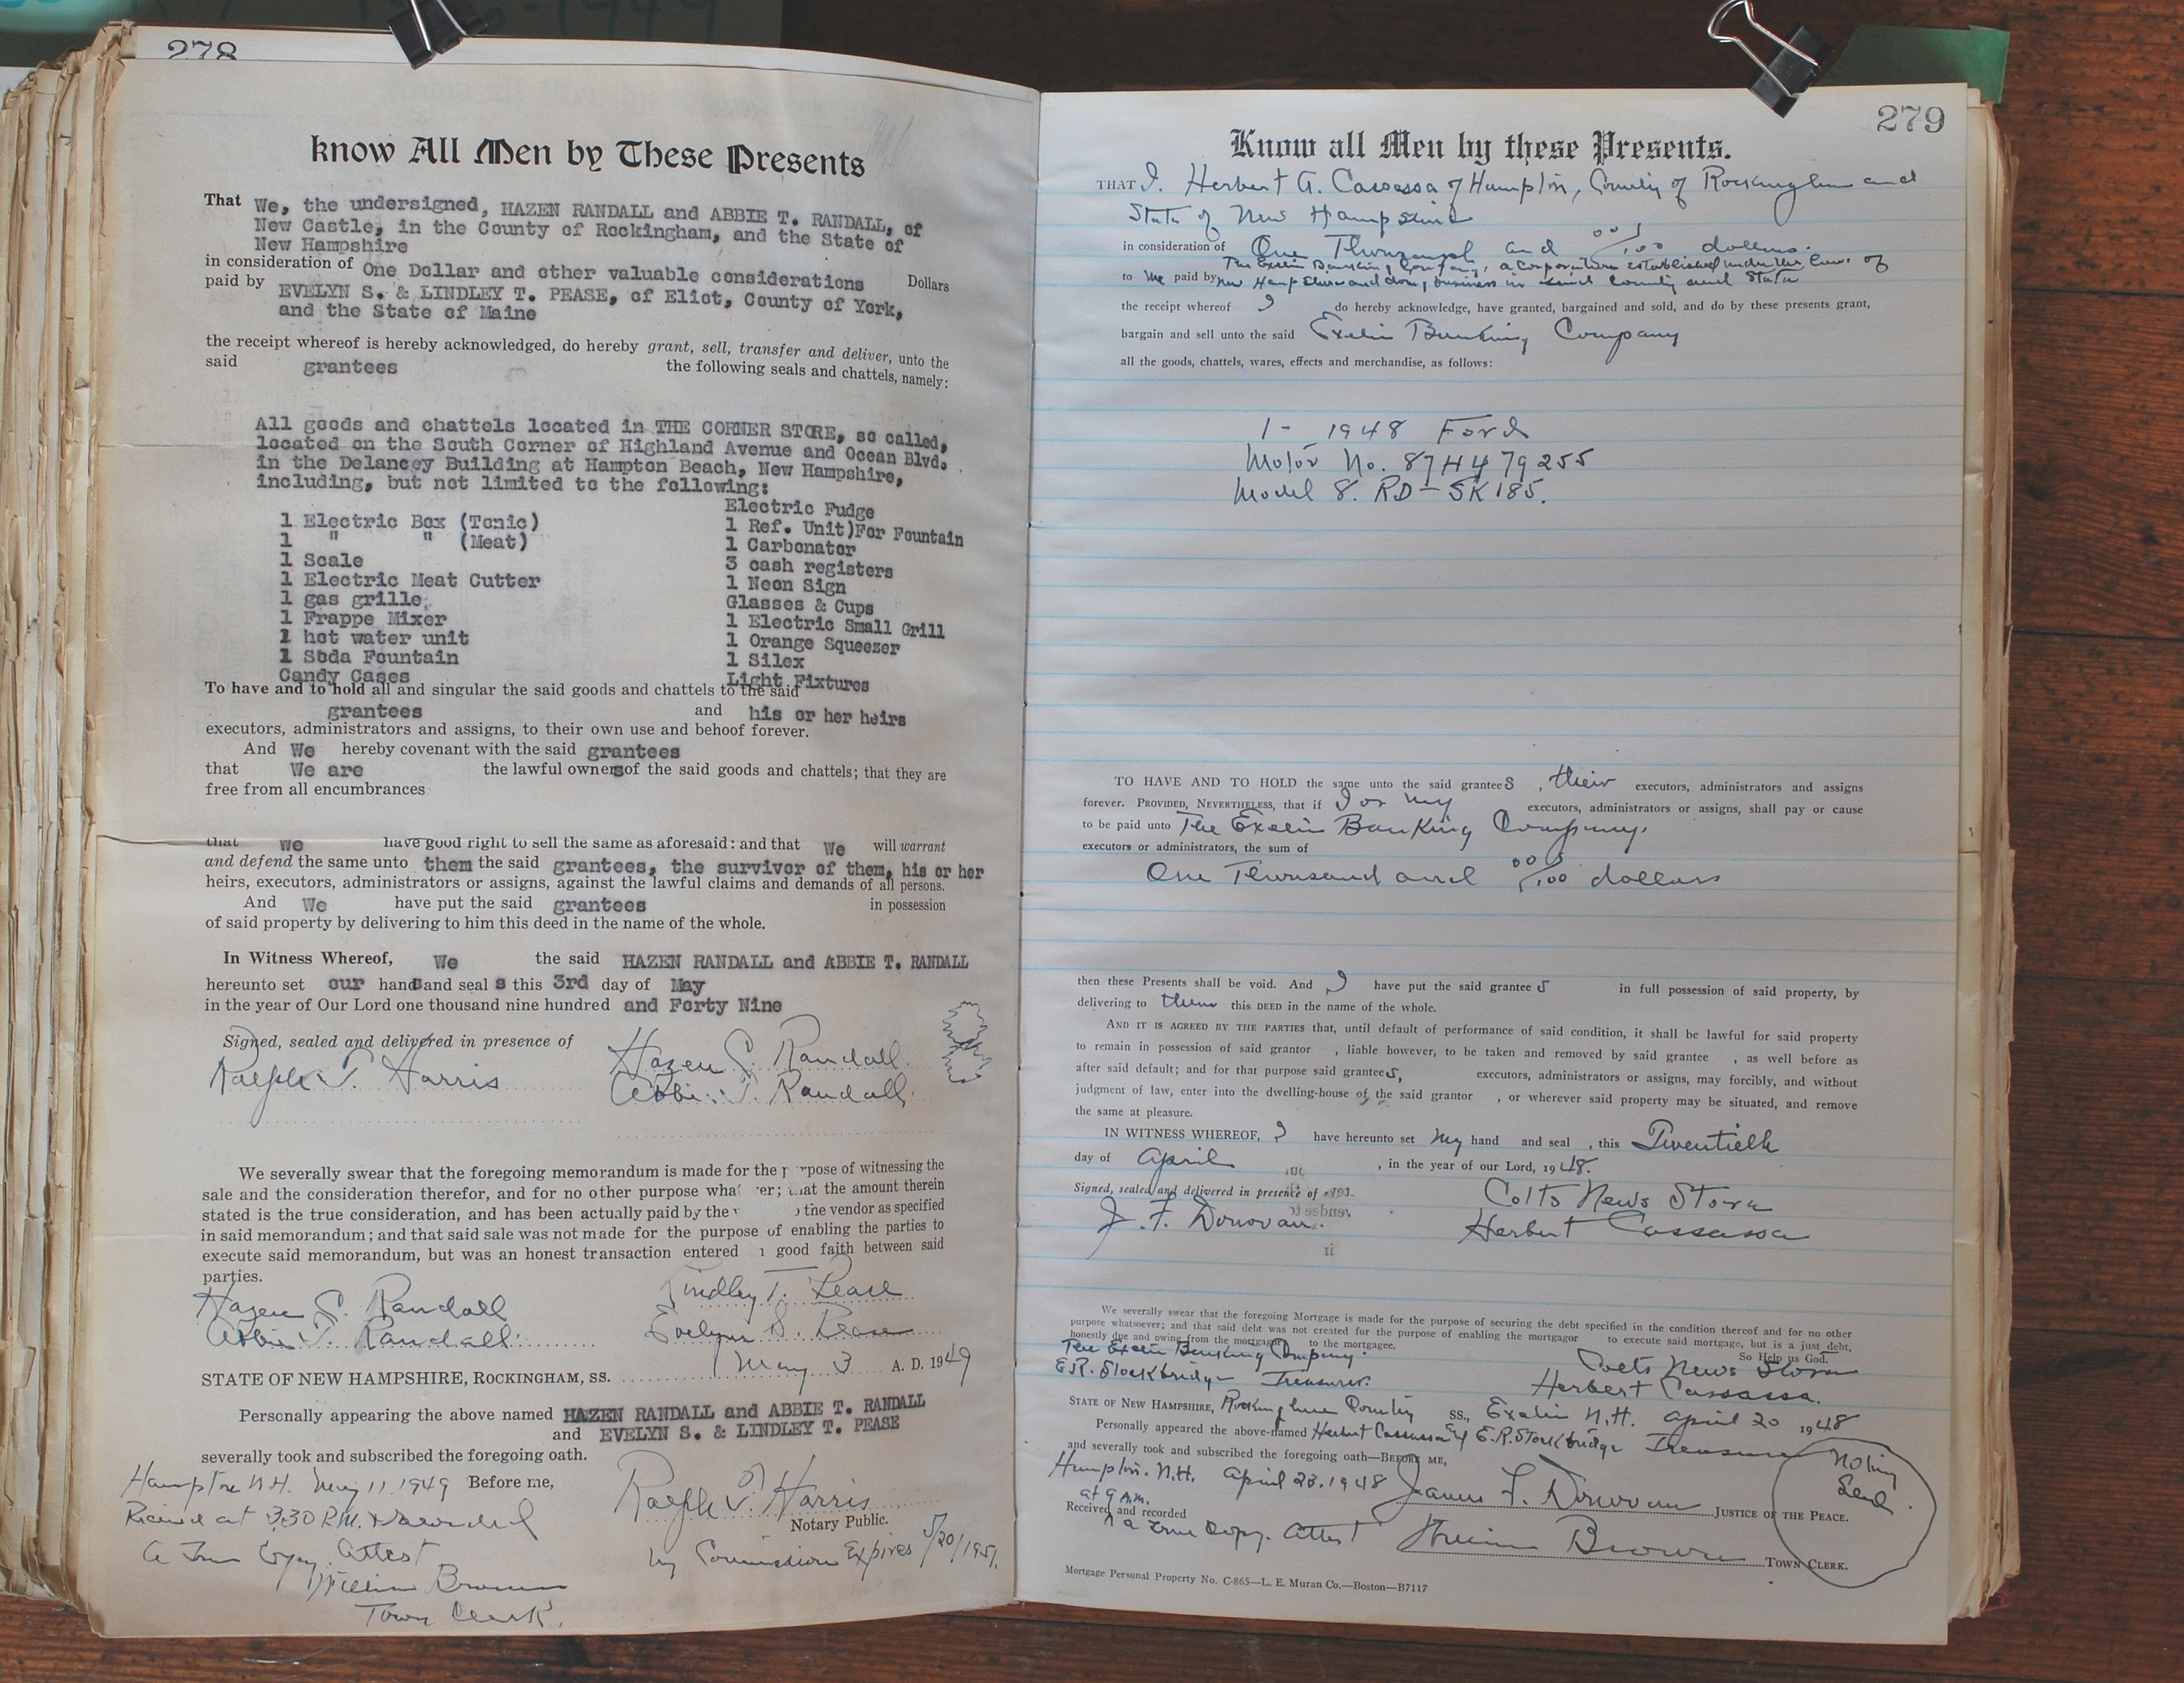 278
know All Men by These Presents
That We, the undersigned, HAZEN RANDALL and ABBIE T. RANDALL, of
New Castle, in the County of Rockingham, and the State of
New Hampshire
in consideration of One Dollar and other valuable considerations Dollars
paid by EVELYN S. & LINDLEY T. PEASE, of Eliot, County of York,
and the State of Maine
the receipt whereof is hereby acknowledged, do hereby grant, sell, transfer and deliver, unto the
said grantees the following seals and chattels, namely:
All goods and chattels located in THE CORNER STORE, so called,
located on the South Corner of Highland Avenue and Ocean Blvd.
in the Delancey Building at Hampton Beach, New Hampshire,
including, but not limited to the following:
1 Electric Box (Tonic)
1 " " (Meat)
1 Scale
1 Electric Meat Cutter
1 gas grille
1 Frappe Mixer
1 hot water unit
1 Soda Fountain
Candy Cases
Electric Fudge
1 Ref. Unit)For Fountain
1 Carbonator
3 cash registers
1 Neon Sign
Glasses & Cups
1 Electric Small Grill
1 Orange Squeezer
1 Silex
Light Fixtures
To have and to hold all and singular the said goods and chattels to the said
grantees and his or her heirs
executors, administrators and assigns, to their own use and behoof forever.
And We hereby covenant with the said grantees
that We are the lawful owners of the said goods and chattels; that they are
free from all encumbrances
that we have good right to sell the same as aforesaid: and that We will warrant
and defend the same unto them the said grantees, the survivor of them, his or her
heirs, executors, administrators or assigns, against the lawful claims and demands of all persons.
And We have put the said grantees in possession
of said property by delivering to him this deed in the name of the whole.
In Witness Whereof, We the said HAZEN RANDALL and ABBIE T. RANDALL
hereunto set our hands and seal s this 3rd day of May
in the year of Our Lord one thousand nine hundred and Forty Nine
Signed, sealed and delivered in presence of
Ralph S. Harris
Hazen S. Randall
Abbie T. Randall
We severally swear that the foregoing memorandum is made for the p rpose of witnessing the
sale and the consideration therefor, and for no other purpose what ver; that the amount therein
stated is the true consideration, and has been actually paid by the v o the vendor as specified
in said memorandum; and that said sale was not made for the purpose of enabling the parties to
execute said memorandum, but was an honest transaction entered good faith between said
parties.
Hazen S. Randall
Abbie T. Randall
Lindley T. Pease
Evelyn S. Pease
STATE OF NEW HAMPSHIRE, ROCKINGHAM, SS. May 3 A. D. 1949
Personally appearing the above named HAZEN RANDALL and ABBIE T. RANDALL
and EVELYN S. & LINDLEY T. PEASE
severally took and subscribed the foregoing oath.
Before me,
Ralph S. Harris
Notary Public.
My Commission Expires 5/20/1951.
Hampton N.H. May 11, 1949
Received at 3:30 P.M. & Recorded
A True Copy. Attest
William Brown
Town Clerk.
279
Know all Men by these Presents.
THAT I, Herbert A. Casassa of Hampton, County of Rockingham and
State of New Hampshire
in consideration of One Thousand and 00/100 dollars.
to me paid by The Exeter Banking Company, a corporation established under the laws of
New Hampshire and doing business in said County and State
the receipt whereof I do hereby acknowledge, have granted, bargained and sold, and do by these presents grant,
bargain and sell unto the said Exeter Banking Company
all the goods, chattels, wares, effects and merchandise, as follows:
1 - 1948 Ford
Motor No. 87H479255
Model 8. RD-SK185.
TO HAVE AND TO HOLD the same unto the said grantees, their executors, administrators and assigns
forever. PROVIDED, NEVERTHELESS, that if I or my executors, administrators or assigns, shall pay or cause
to be paid unto The Exeter Banking Company,
executors or administrators, the sum of
One Thousand and 00/100 dollars
then these Presents shall be void. And I have put the said grantee s in full possession of said property, by
delivering to them this DEED in the name of the whole.
AND IT IS AGREED BY THE PARTIES that, until default of performance of said condition, it shall be lawful for said property
to remain in possession of said grantor , liable however, to be taken and removed by said grantee , as well before as
after said default; and for that purpose said grantees, executors, administrators or assigns, may forcibly, and without
judgment of law, enter into the dwelling-house of the said grantor , or wherever said property may be situated, and remove
the same at pleasure.
IN WITNESS WHEREOF, I have hereunto set my hand and seal , this Twentieth
day of April , in the year of our Lord, 1948.
Signed, sealed and delivered in presence of
J. F. Donovan.
Colts News Store
Herbert Cassassa
We severally swear that the foregoing Mortgage is made for the purpose of securing the debt specified in the condition thereof and for no other
purpose whatsoever; and that said debt was not created for the purpose of enabling the mortgagor to execute said mortgage, but is a just debt,
honestly due and owing from the mortgagor to the mortgagee.
So Help us God.
The Exeter Banking Company.
E.R. Stockbridge Treasurer.
Colts News Store
Herbert Cassassa.
STATE OF NEW HAMPSHIRE, Rockingham County SS., Exeter N.H. April 20 1948
Personally appeared the above-named Herbert Cassassa & E.R. Stockbridge Treasurer
and severally took and subscribed the foregoing oath—BEFORE ME,
Hampton. N.H. April 23. 1948
at 9 A.M.
James F. Donovan JUSTICE OF THE PEACE.
Received and recorded
a True Copy. Attest William Brown TOWN CLERK.
Notary
Seal.
Mortgage Personal Property No. C-865—L. E. Muran Co.—Boston—B7117